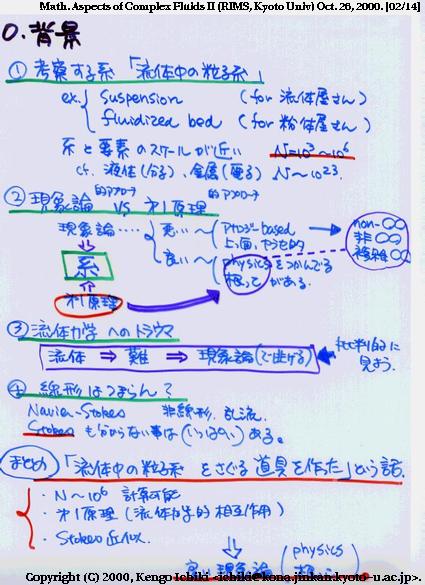 Math. Aspects of Complex Fluids II (RIMS, Kyoto Univ) Oct. 26, 2000. [02/14]
0. 背景
① 考察する系 「流体中の粒子系」
ex. suspension (for 流体屋さん)
fluidized bed (for 粉体屋さん)
系と要素のスケールが近い N=10³~10⁶
cf. 液体(分子), 金属(電子) N~10²³.
② 現象論的アプローチ vs 第1原理的アプローチ
現象論 ‥‥ 悪い~ (アナロジー based
上面,
non-○○
非○○
複雑○○
良い~ (physicsをつかんでる
根っこがある.
系
第1原理
③ 流体力学へのトラウマ
流体 ⇒ 難 ⇒ 現象論(で逃げる)
批判的に
見よう.
④ 線形はつまらん?
Navier-Stokes 非線形, 乱流.
Stokes も分からない事は(いっぱい)ある.
まとめ 「流体中の粒子系をさぐる道具を作った」という話.
・N~10⁶ 計算可能
・第1原理 (流体力学的相互作用)
・Stokes近似.
良い現象論 (physics
Copyright (C) 2000, Kengo Ichiki <ichiki@kona.jinkan.kyoto-u.ac.jp>.